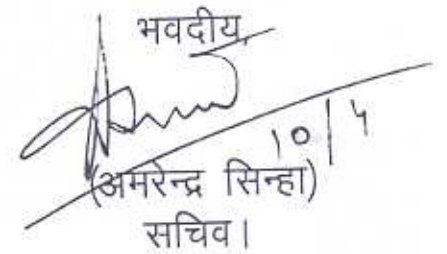 भवदीय,
10/4
(अमरेन्द्र सिन्हा)
सचिव।